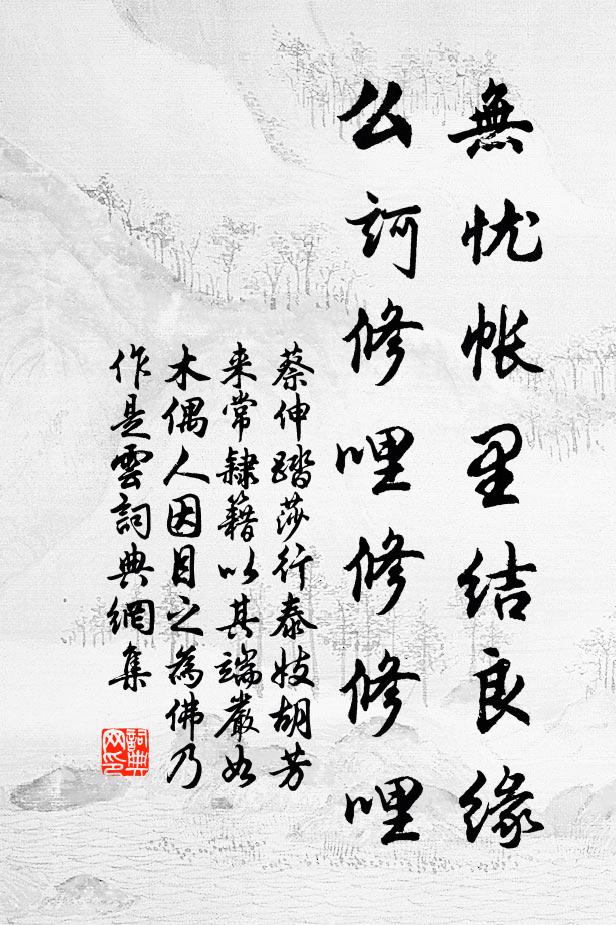 無忧帐里结良缘
么訶修哩修修哩
蔡伸踏莎行泰妓胡芳
来常隸籍以其端嚴如
木偶人因目之為佛乃
作是雲詞典網集
詞典
网印